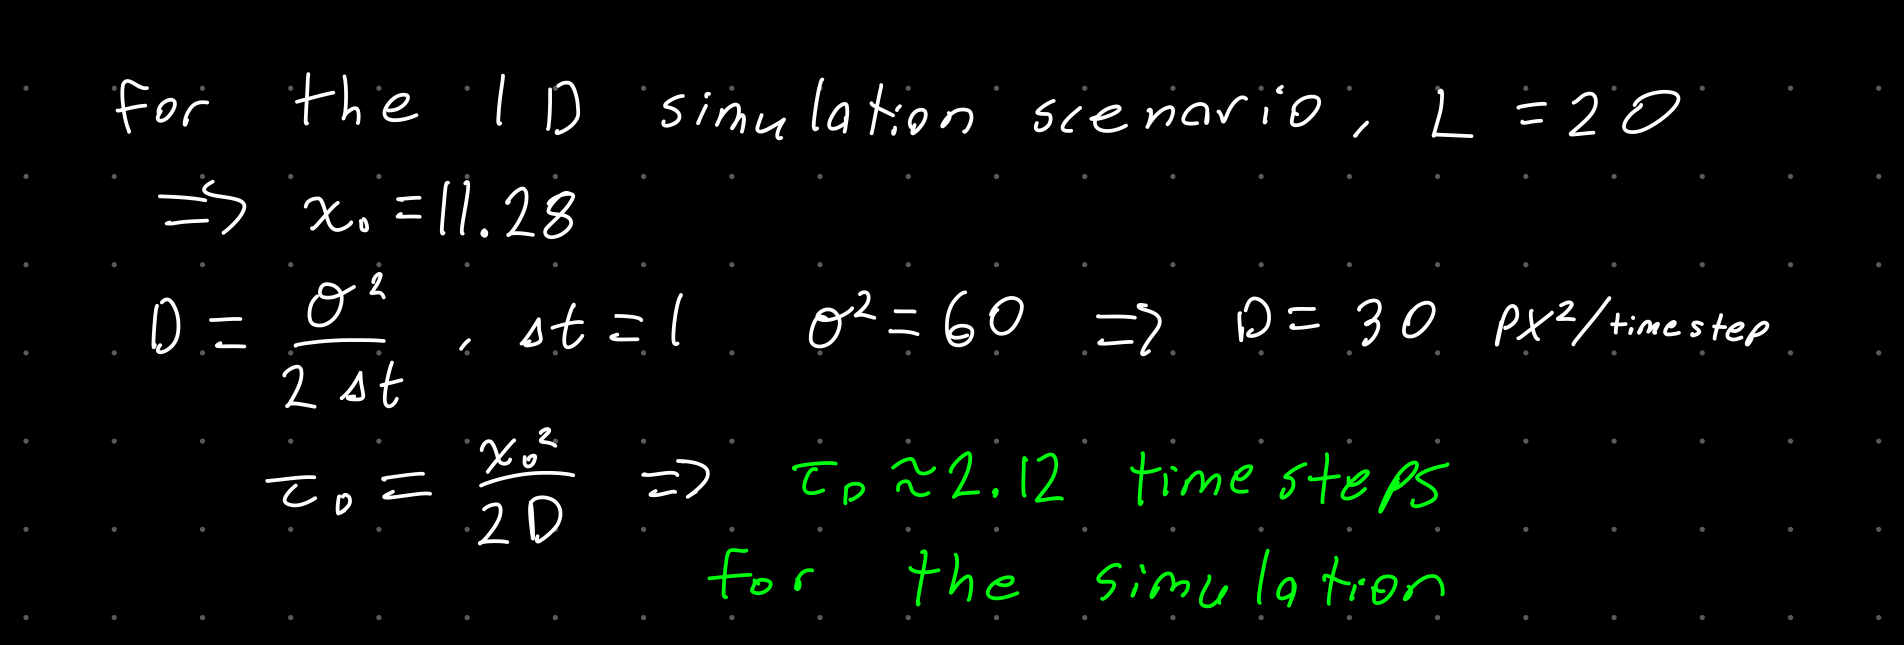 for the 1D simulation scenario, L = 20
⇒ x₀ = 11.28
D = σ²/(2 Δt), Δt = 1 σ² = 60 ⇒ D = 30 px²/timestep
τ_D = x₀²/(2D) ⇒ τ_D ≈ 2.12 time steps
for the simulation